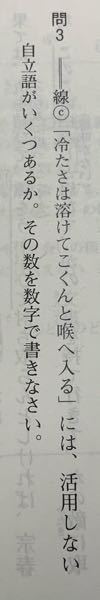 問3　――線ⓒ「冷たさは溶けてこくんと喉へ入る」には、活用しない
自立語がいくつあるか。その数を数字で書きなさい。